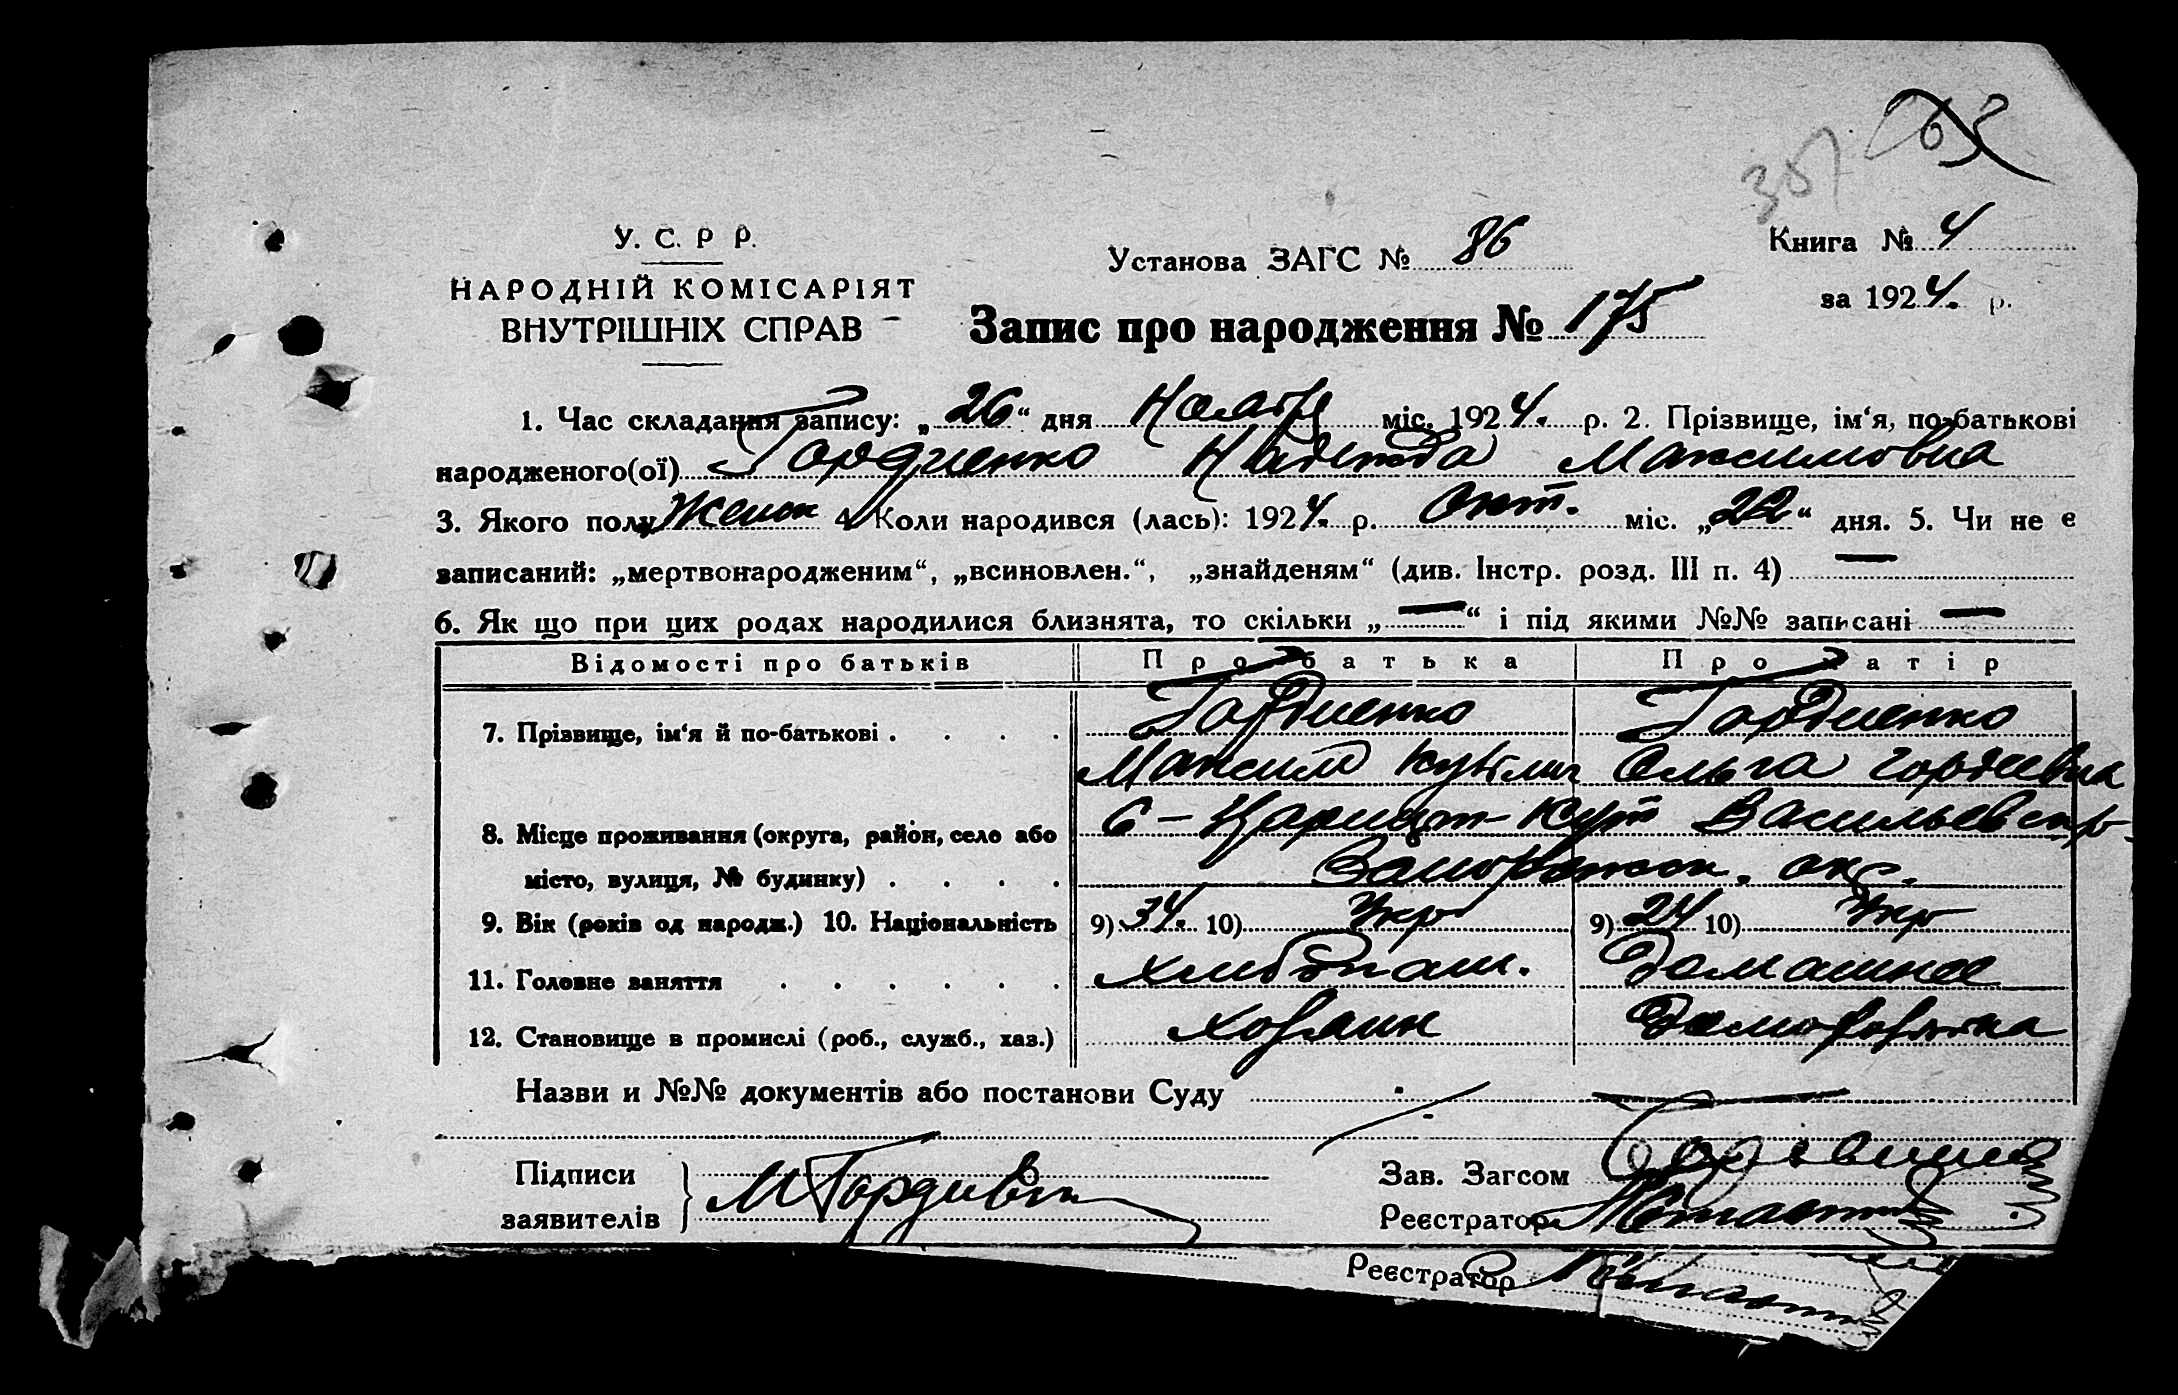 307
У. С. Р Р.
НАРОДНІЙ КОМІСАРІЯТ
ВНУТРІШНІХ СПРАВ
Установа ЗАГС № 86
Книга № 4
за 1924. р.
Запис про народження № 175
1. Час складання запису: „26“ дня Ноября міс. 1924. р. 2. Прізвище, ім‘я, по-батькові
народженого(ої) Гордиенко Надежда Максимовна
3. Якого полу Женск 4. Коли народився (лась): 1924. р. Окт. міс. „22“ дня. 5. Чи не є
записаний: „мертвонародженим“, „всиновлен.“, „знайденям“ (див. Інстр. розд. III п. 4) —
6. Як що при цих родах народилися близнята, то скільки „—“ і під якими №№ записані —
Відомості про батьків Про батька Про матір
7. Прізвище, ім‘я й по-батькові . . . . Гордиенко Гордиенко
Максим Ольга Гордеевна
8. Місце проживання (округа, район, село або С – Царицын – Кут Васильевск р.
місто, вулиця, № будинку) . . . . Запорожск. окр.
9. Вік (років од народж.) 10. Національність 9) 34. 10) Укр 9) 24 10) Укр
11. Головне заняття . . . . . . Хлибопаш. Домашнее
12. Становище в промислі (роб., служб., хаз.) хозяин Домохозяйка
Назви и №№ документів або постанови Суду
Підписи
заявителів
М Гордиенко
Зав. Загсом
Реєстратор
Реєстратор